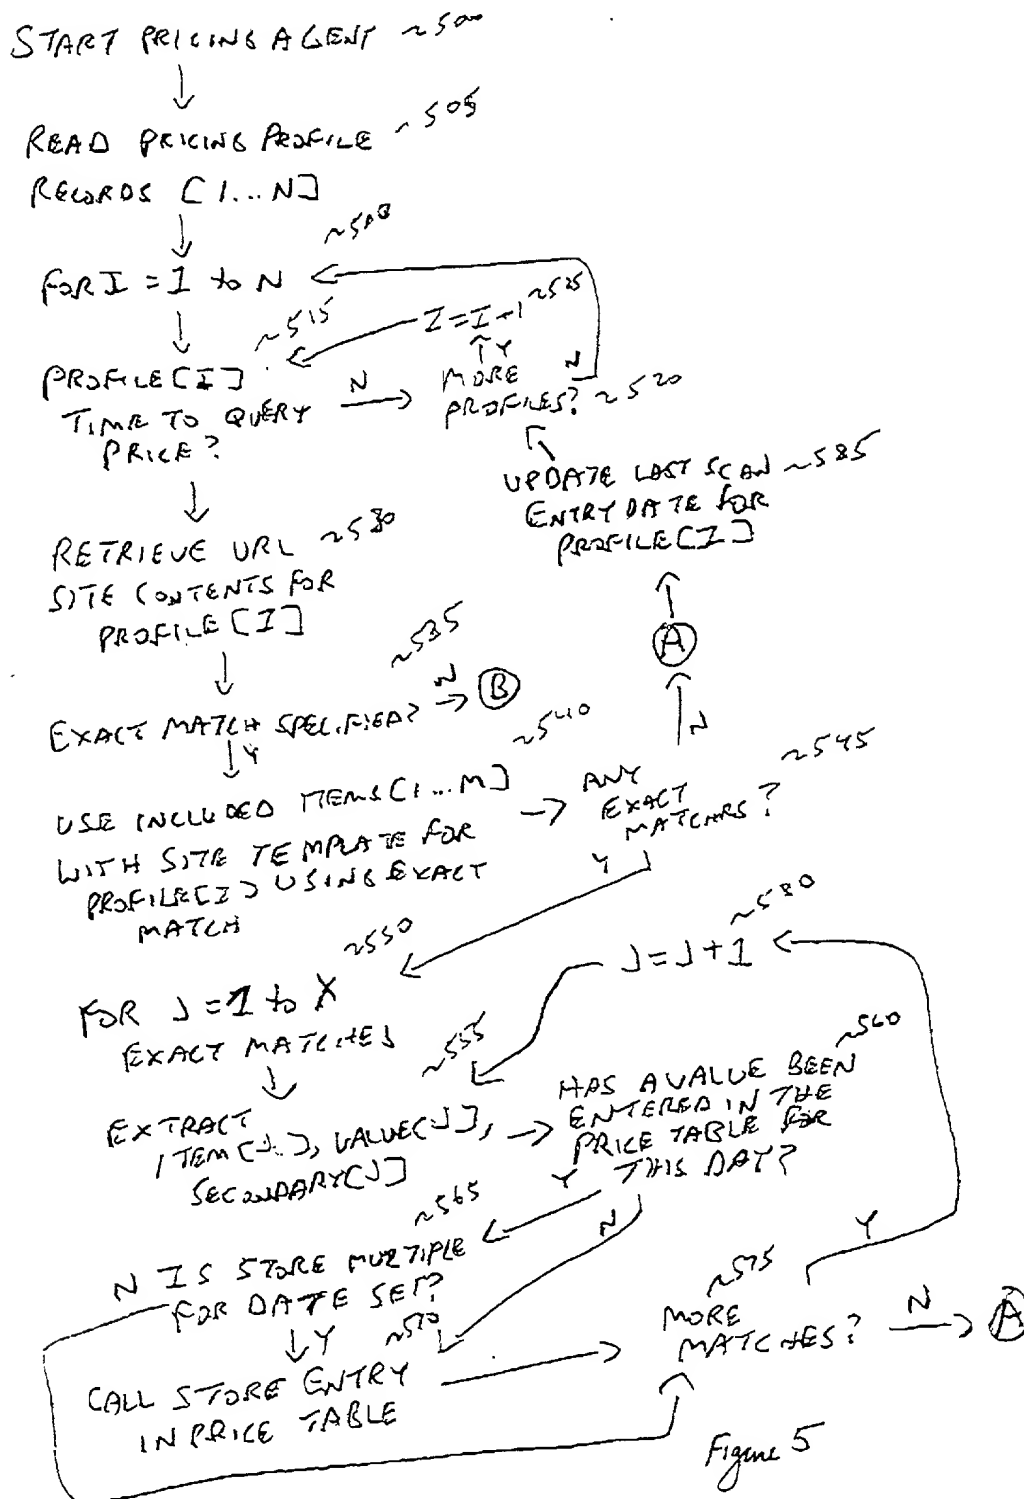 START PRICING AGENT ~500
READ PRICING PROFILE ~505
RECORDS [1...N]
FOR I = 1 to N
PROFILE[I] ~515
TIME TO QUERY
PRICE?
N
I = I+1 ~525
Y
N
MORE
PROFILES? ~520
UPDATE LAST SCAN ~585
ENTRY DATE FOR
PROFILE[I]
RETRIEVE URL ~530
SITE CONTENTS FOR
PROFILE[I]
A
EXACT MATCH SPECIFIED? ~535
N
B
Y
N
USE INCLUDED ITEMS[1...M] ~540
WITH SITE TEMPLATE FOR
PROFILE[I] USING EXACT
MATCH
ANY
EXACT
MATCHES? ~545
Y
FOR J = 1 to X ~550
EXACT MATCHES
J = J+1 ~580
EXTRACT ~555
ITEM[J], VALUE[J],
SECONDARY[J]
HAS A VALUE BEEN ~560
ENTERED IN THE
PRICE TABLE FOR
THIS DAY?
Y
N
N IS STORE MULTIPLE ~565
FOR DATE SET?
Y
CALL STORE ENTRY ~570
IN PRICE TABLE
MORE ~575
MATCHES?
Y
N
A
Figure 5